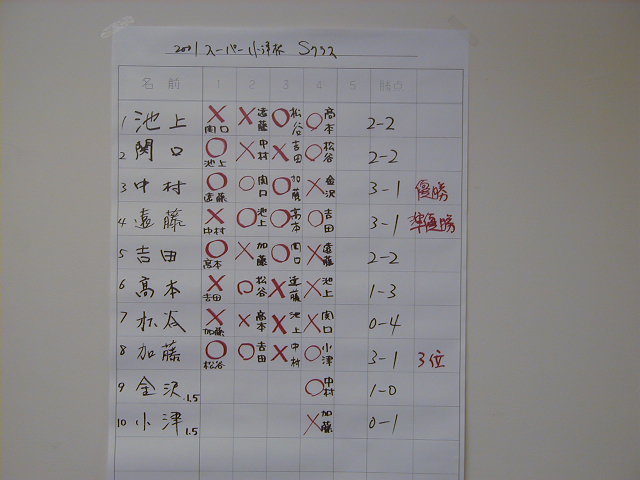 2001 スーパー小津杯 Sクラス
名前 1 2 3 4 5 勝点
1 池上 ×関口 ×遠藤 ○松谷 ○高本 2-2
2 関口 ○池上 ×中村 ×吉田 ○松谷 2-2
3 中村 ○遠藤 ○関口 ○加藤 ×金沢 3-1 優勝
4 遠藤 ×中村 ○池上 ○高本 ○吉田 3-1 準優勝
5 吉田 ○高本 ×加藤 ○関口 ×遠藤 2-2
6 高本 ×吉田 ○松谷 ×遠藤 ×池上 1-3
7 松谷 ×加藤 ×高本 ×池上 ×関口 0-4
8 加藤 ○松谷 ○吉田 ×中村 ○小津 3-1 3位
9 金沢 1.5 ○中村 1-0
10 小津 1.5 ×加藤 0-1